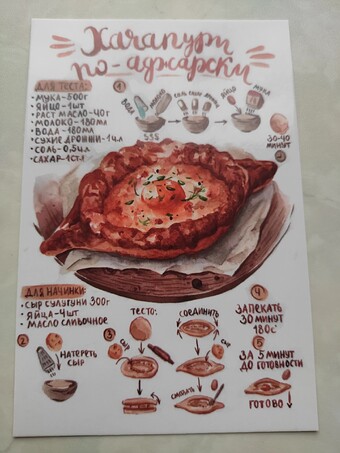 Хачапури
по-аджарски
Для теста:
- Мука-500г
- Яйцо-1шт
- Раст масло-40г
- Молоко-180мл
- Вода-180мл
- Сухие дрожжи-1ч.л
- Соль-0,5ч.л
- Сахар-1ст.л
1
Вода
соль сахар дрожжи
яйцо
мука
30-40
минут
Для начинки:
- Сыр сулугуни 300г
- Яйца-4шт
- Масло сливочное
2
Натереть
сыр
3
Тесто:
сыр
Соединить
сыр
смазать
4
Запекать
30 минут
180с°
5
За 5 минут
до готовности
Готово